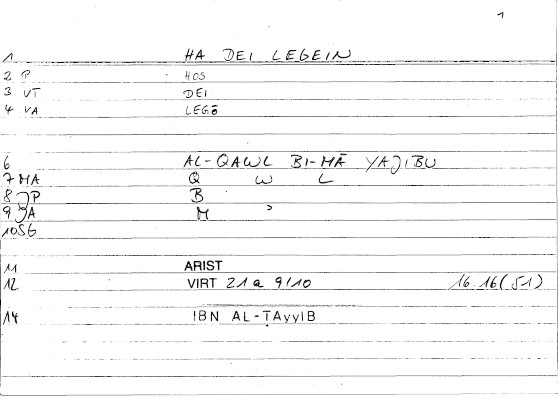 1
1 HA DEI LEGEIN
2 P HOS
3 VT DEI
4 VA LEGŌ
6 AL-QAWL BI-MĀ YAJIBU
7 MA Q W L
8 JP B
9 JA M ʾ
10SG
11 ARIST
12 VIRT 21 a 9/10 16.16 (51)
14 IBN AL-ṬAyyIB